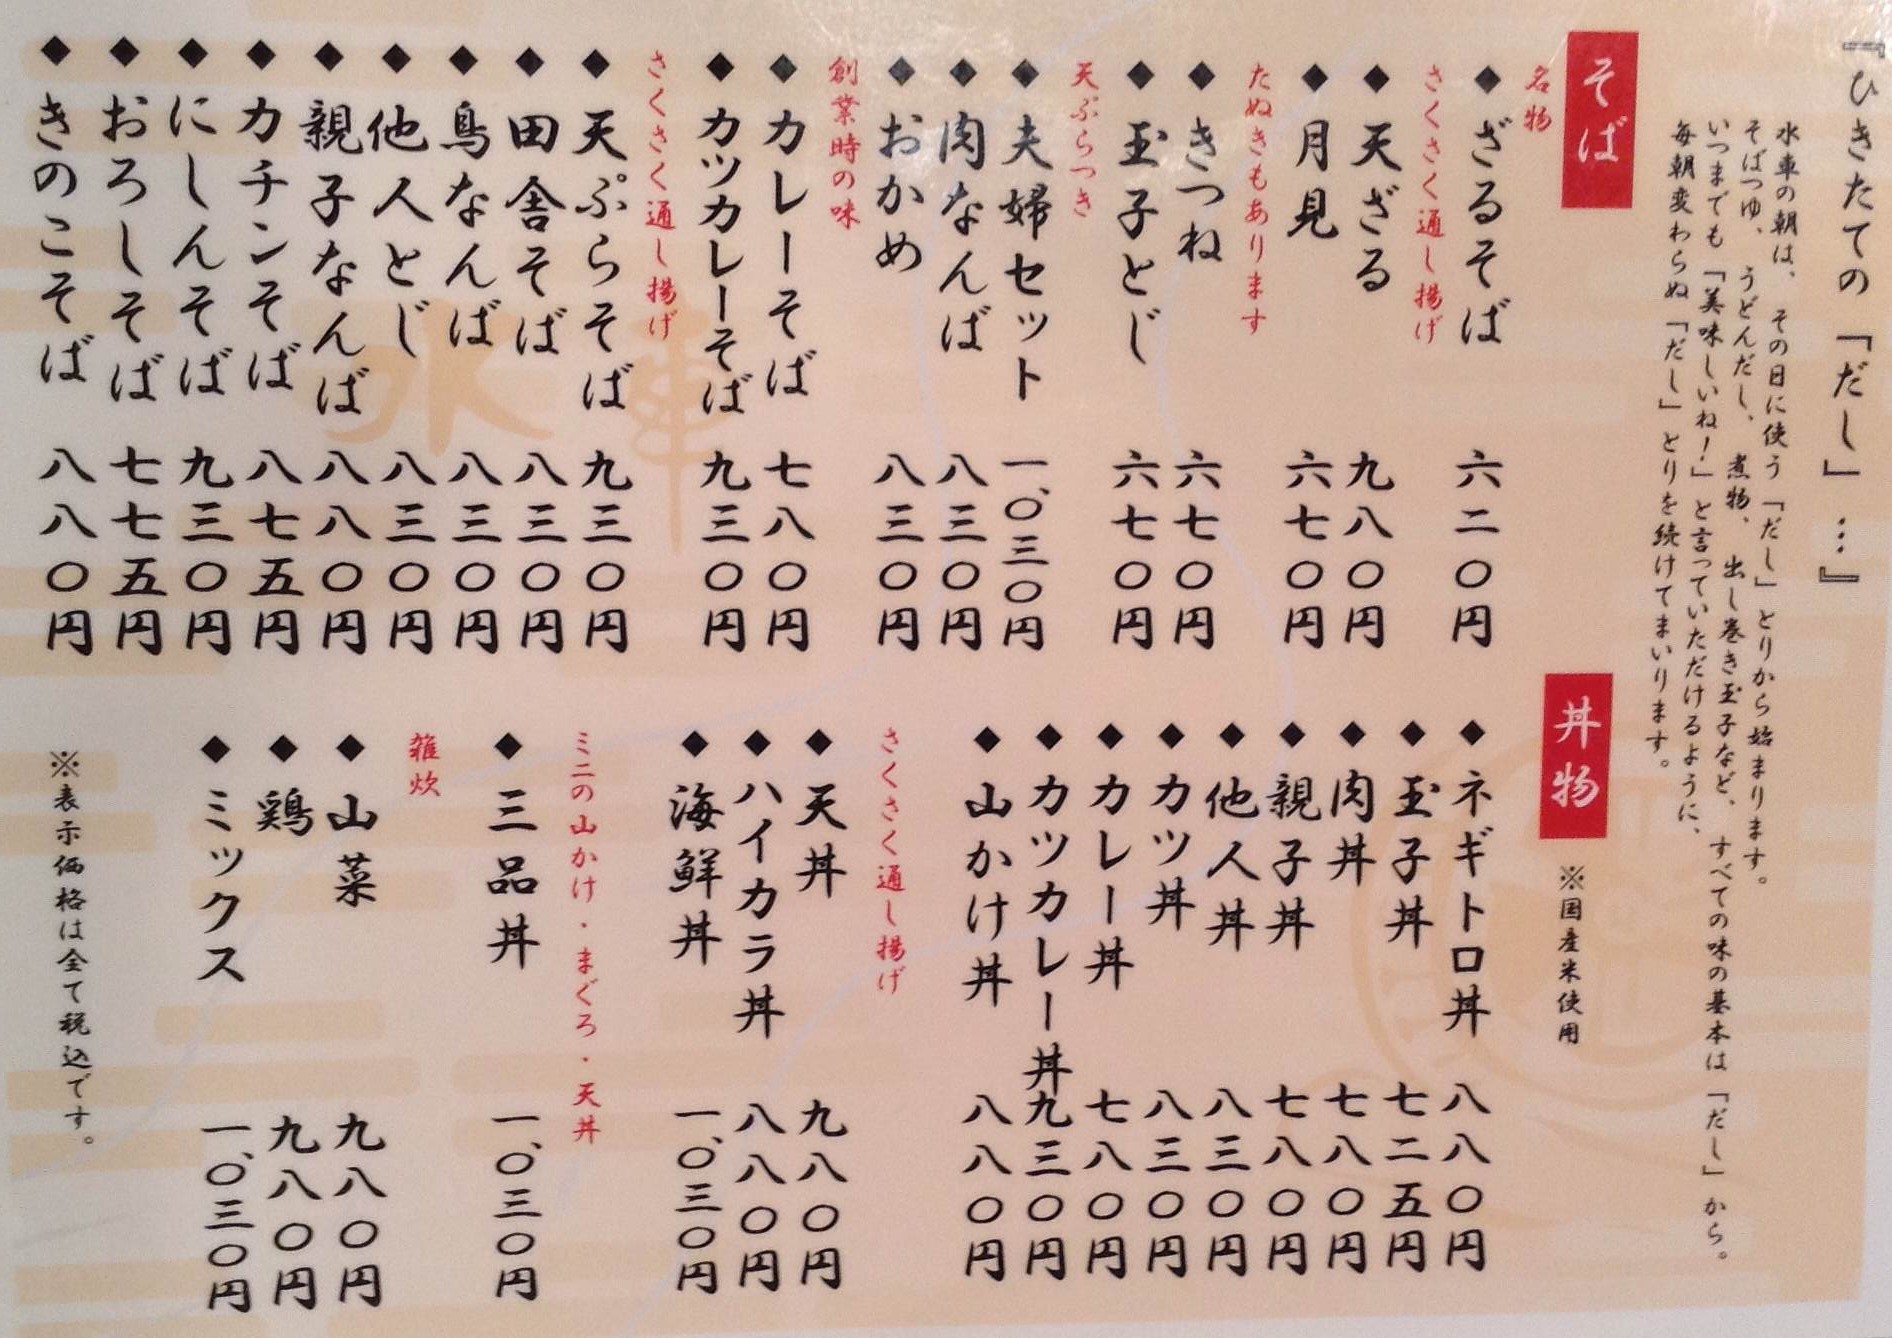 『ひきたての「だし」…』
水車の朝は、その日に使う「だし」とりから始まります。
そばつゆ、うどんだし、煮物、出し巻き玉子など、すべての味の基本は「だし」から。
いつまでも「美味しいね!」と言っていただけるように、
毎朝変わらぬ「だし」とりを続けてまいります。
そば
名物
◆ざるそば 六二〇円
さくさく通し揚げ
◆天ざる 九八〇円
◆月見 六七〇円
たぬきもあります
◆きつね 六七〇円
◆玉子とじ 六七〇円
天ぷらつき
◆夫婦セット 一、〇三〇円
◆肉なんば 八三〇円
◆おかめ 八三〇円
創業時の味
◆カレーそば 七八〇円
◆カツカレーそば 九三〇円
さくさく通し揚げ
◆天ぷらそば 九三〇円
◆田舎そば 八三〇円
◆鳥なんば 八三〇円
◆他人とじ 八三〇円
◆親子なんば 八八〇円
◆カチンそば 八七五円
◆にしんそば 九三〇円
◆おろしそば 七七五円
◆きのこそば 八八〇円
丼物 ※国産米使用
◆ネギトロ丼 八八〇円
◆玉子丼 七二五円
◆肉丼 七八〇円
◆親子丼 七八〇円
◆他人丼 八三〇円
◆カツ丼 八三〇円
◆カレー丼 七八〇円
◆カツカレー丼 九三〇円
◆山かけ丼 八八〇円
さくさく通し揚げ
◆天丼 九八〇円
◆ハイカラ丼 八八〇円
◆海鮮丼 一、〇三〇円
ミニの山かけ・まぐろ・天丼
◆三品丼 一、〇三〇円
雑炊
◆山菜 九八〇円
◆鶏 九八〇円
◆ミックス 一、〇三〇円
※表示価格は全て税込です。
水車